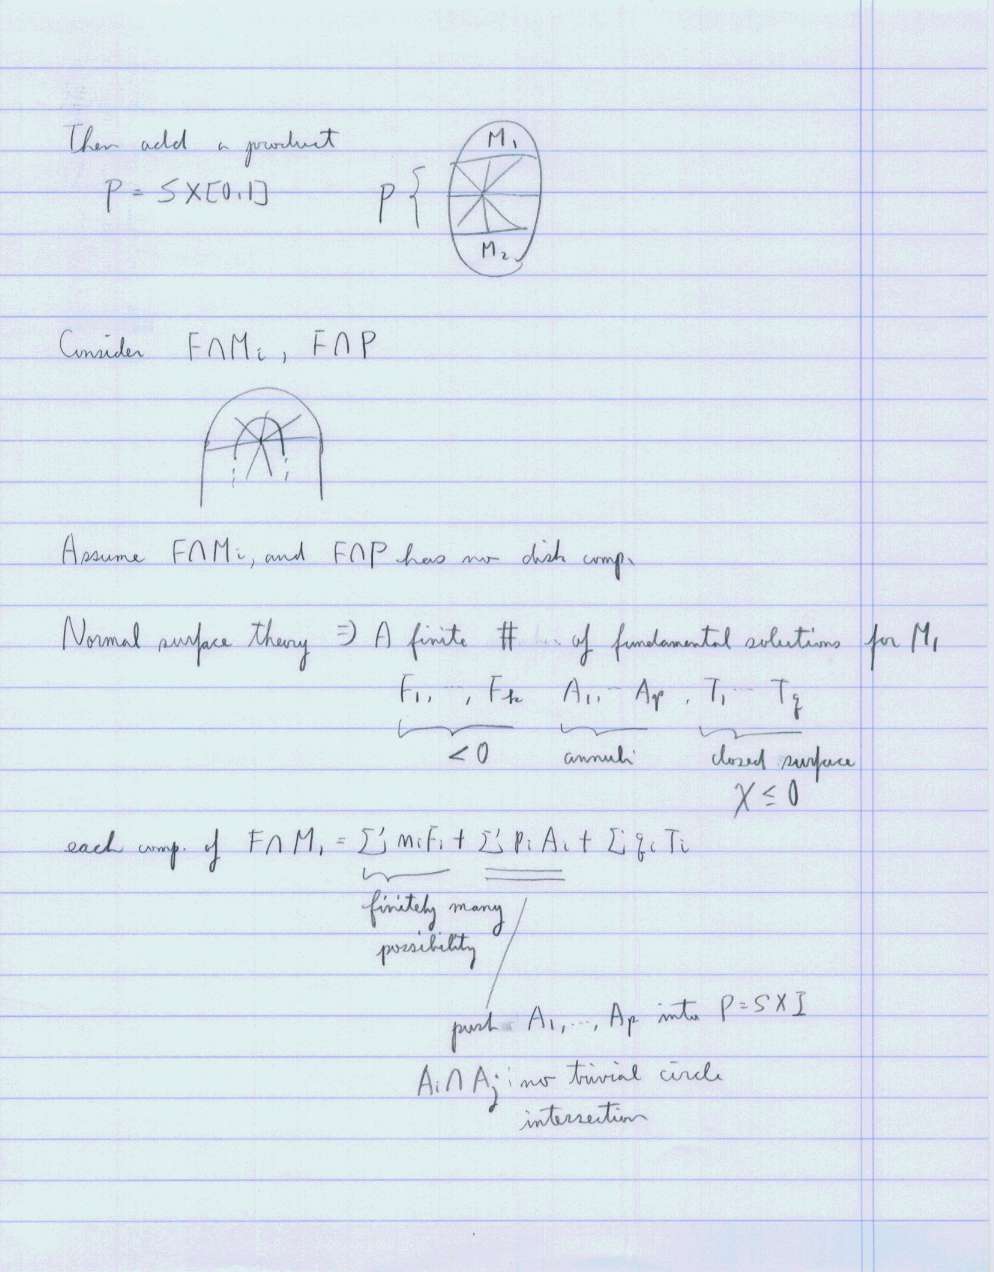 Then add a product
P = S X [0,1]
P {
M1
M2
Consider F∩Mi, F∩P
Assume F∩Mi, and F∩P has no disk comp.
Normal surface theory ⇒ A finite # of fundamental solutions for M1
F1, ..., Fk A1, ... Ap, T1 ... Tq
< 0 annuli closed surface
χ ≤ 0
each comp. of F∩M1 = Σ niFi + Σ piAi + Σ qiTi
finitely many
possibility
push A1, ..., Ap into P = S X I
Ai∩Aj : no trivial circle
intersection